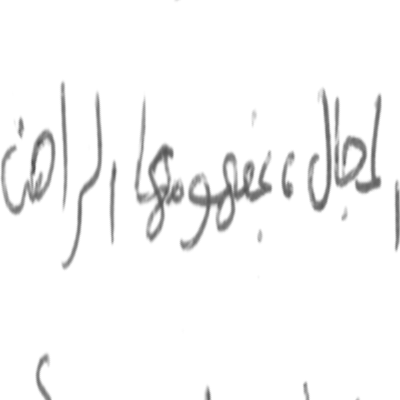 المجال، بمفهومها الراهن